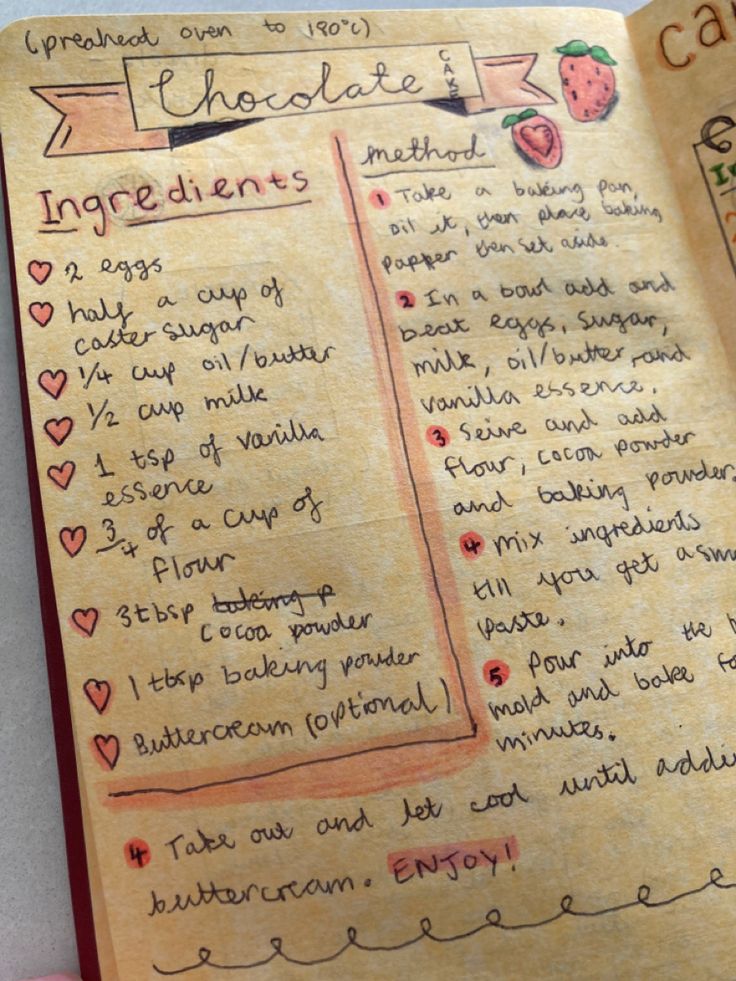 (preahead oven to 190°c)
Chocolate
CAKE
Ingredients
2 eggs
half a cup of
caster sugar
1/4 cup oil/butter
1/2 cup milk
1 tsp of vanilla
essence
3/4 of a cup of
flour
3tbsp baking p
cocoa powder
1 tbsp baking powder
Buttercream (optional)
method
1 Take a baking pan,
oil it, then place baking
papper then set aside.
2 In a bowl add and
beat eggs, sugar,
milk, oil/butter, and
vanilla essence.
3 Seive and add
flour, cocoa powder
and baking powder.
4 mix ingredients
till you get a sm
paste.
5 Pour into the
mold and bake fo
minutes.
4 Take out and let cool until addi
buttercream. ENJOY!
ca